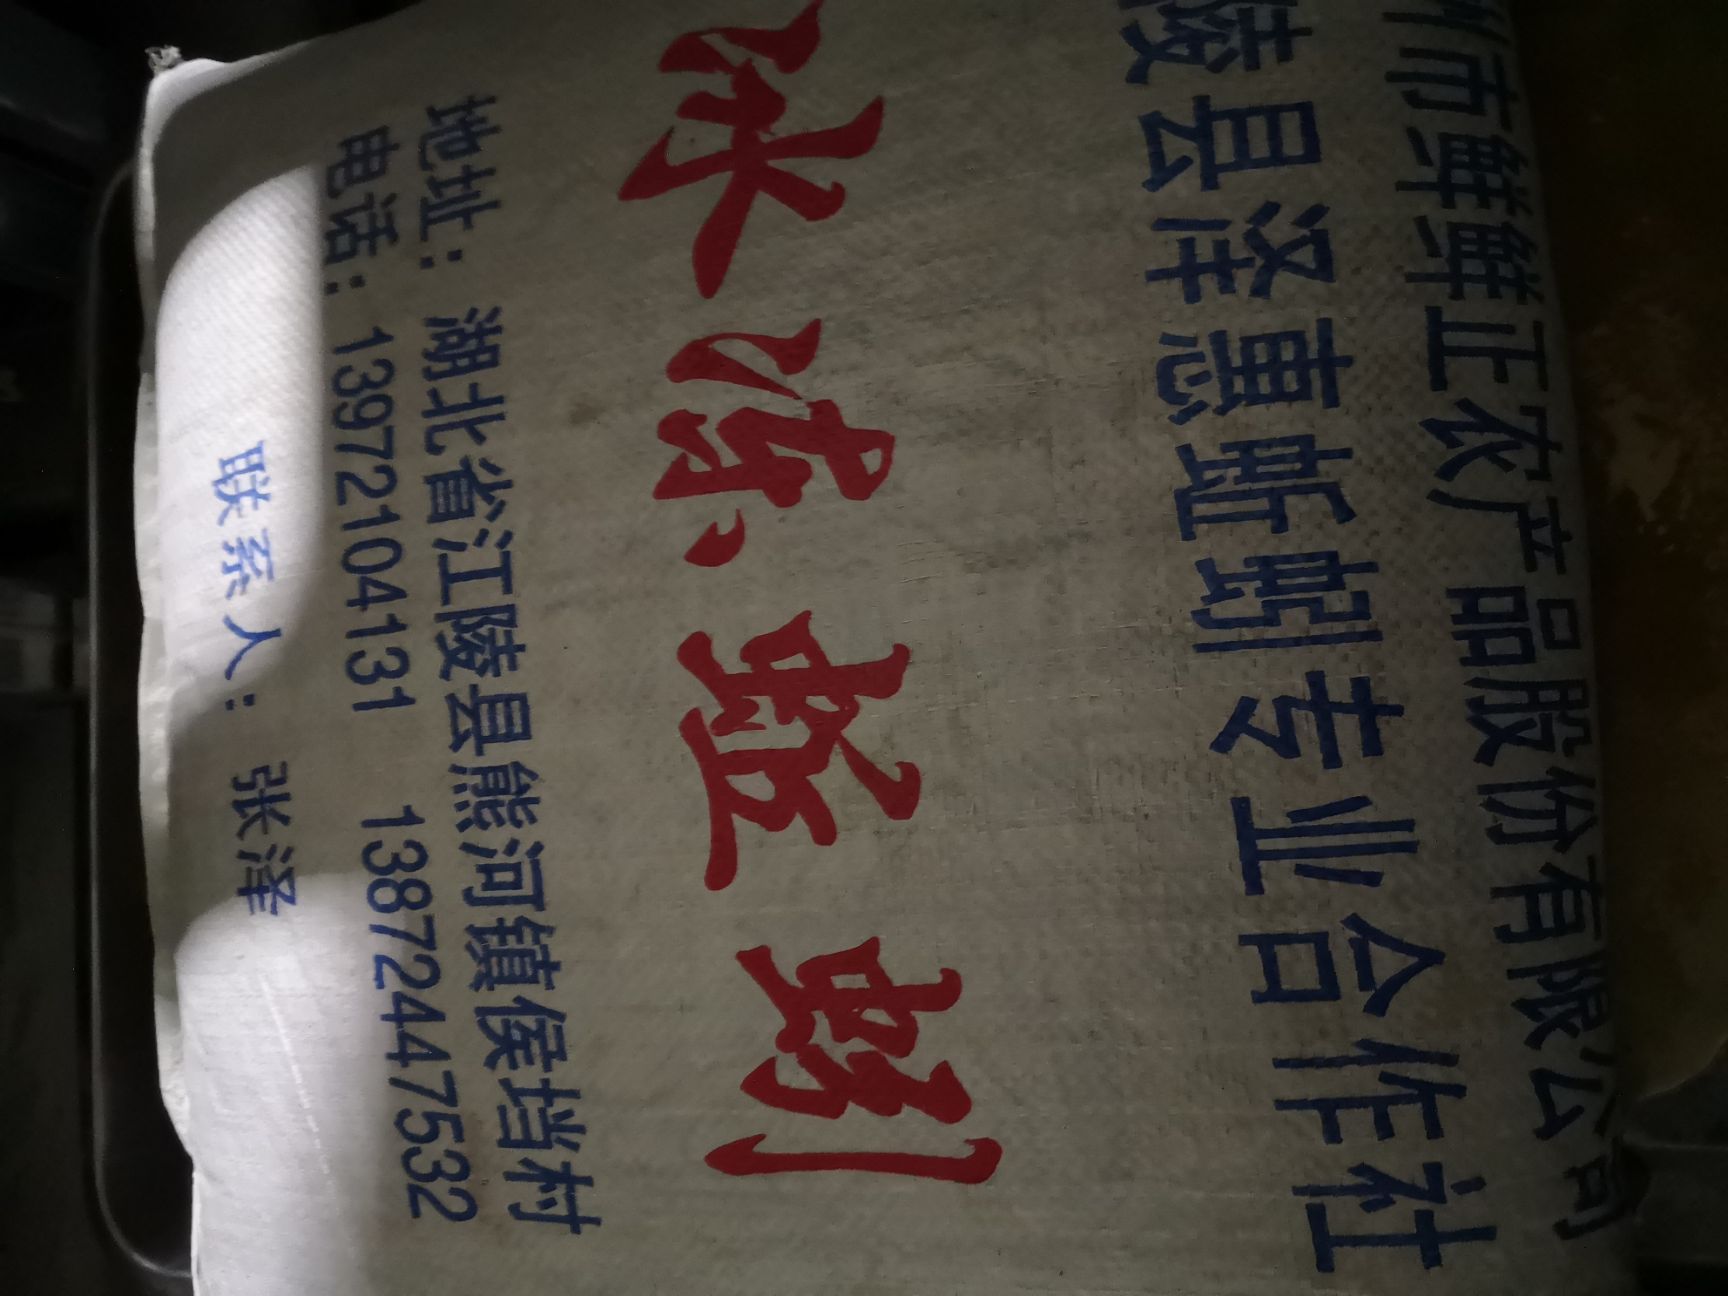 州市鲜鲜正农产品股份有限公司
陵县泽惠蚯蚓专业合作社
冰冻蚯蚓
地址：湖北省江陵县熊河镇侯垱村
电话：13972104131 13872447532
联系人：张泽